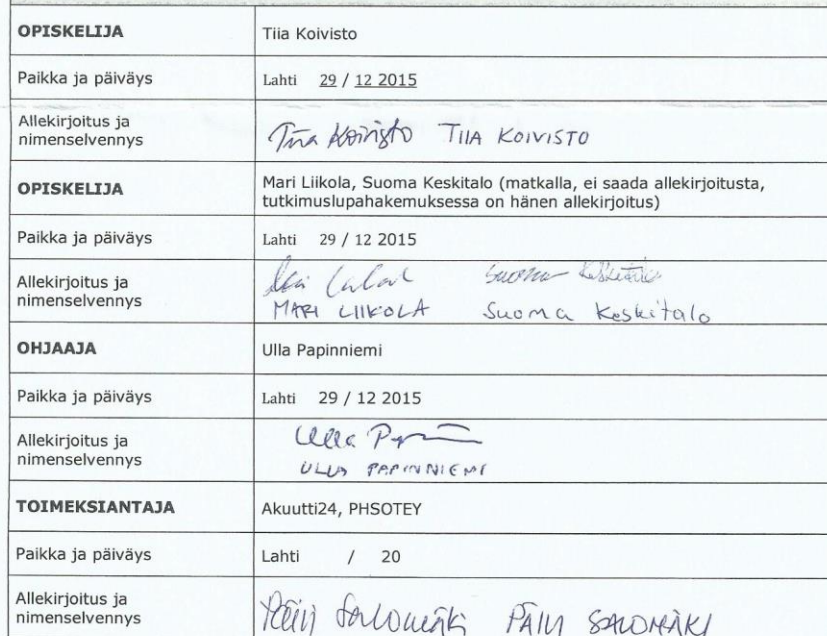 OPISKELIJA Tiia Koivisto
Paikka ja päiväys Lahti 29 / 12 2015
Allekirjoitus ja
nimenselvennys Tiia Koivisto TIIA KOIVISTO
OPISKELIJA Mari Liikola, Suoma Keskitalo (matkalla, ei saada allekirjoitusta,
tutkimuslupahakemuksessa on hänen allekirjoitus)
Paikka ja päiväys Lahti 29 / 12 2015
Allekirjoitus ja Suoma Keskitalo
nimenselvennys MARI LIIKOLA Suoma Keskitalo
OHJAAJA Ulla Papinniemi
Paikka ja päiväys Lahti 29 / 12 2015
Allekirjoitus ja Ulla
nimenselvennys ULLA PAPINNIEMI
TOIMEKSIANTAJA Akuutti24, PHSOTEY
Paikka ja päiväys Lahti / 20
Allekirjoitus ja
nimenselvennys Päivi Salomäki PÄIVI SALOMÄKI